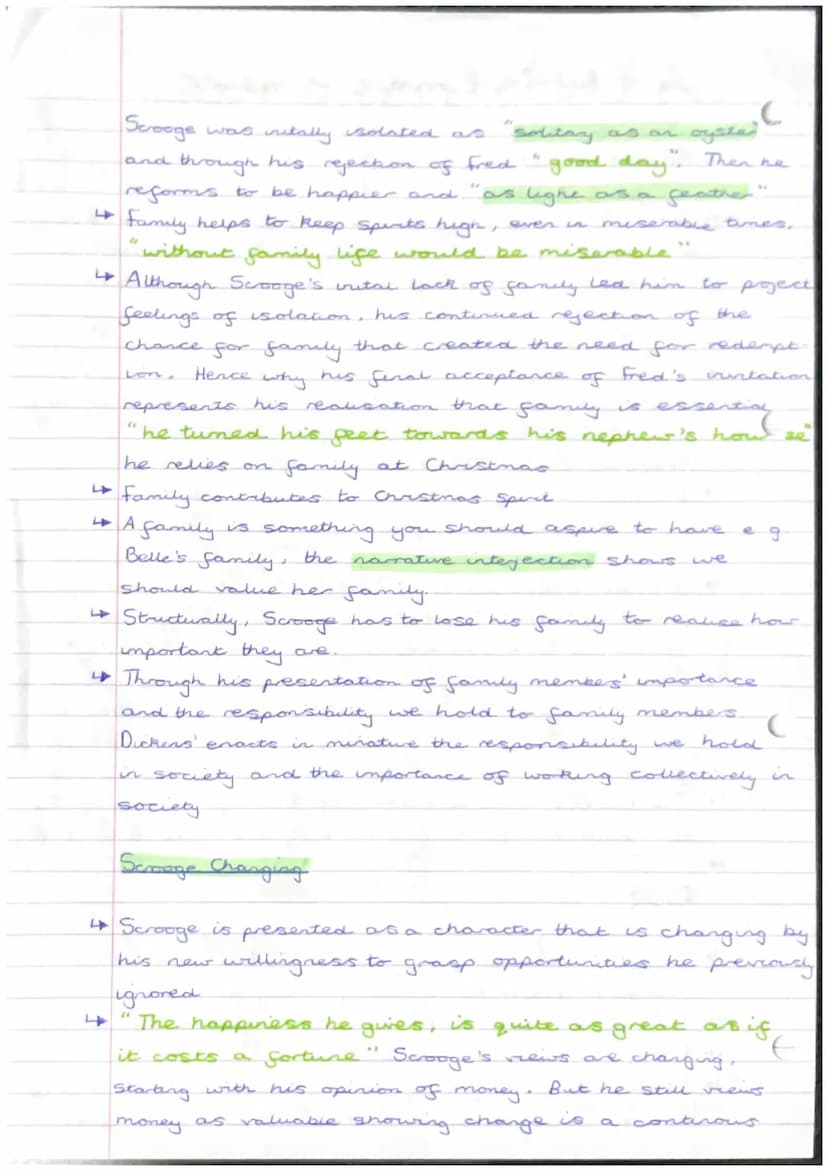 Scrooge was initally isolated as "solitary as an oyster"
and through his rejection of Fred "good day". Then he
reforms to be happier and "as light as a feather"
↳ Family helps to keep spirits high, even in miserable times,
"without family life would be miserable"
↳ Although Scrooge's inital lack of family led him to poject
feelings of isolation, his continued rejection of the
chance for family that created the need for redempt-
ion. Hence why his final acceptance of Fred's invitation
represents his realisation that family is essential
"he turned his feet towards his nephew's house"
he relies on family at Christmas
↳ Family contributes to Christmas spirit
↳ A family is something you should aspire to have e g
Belle's family, the narrative intejection shows we
should value her family.
↳ Structurally, Scrooge has to lose his family to realise how
important they are.
↳ Through his presentation of family members' importance
and the responsibility we hold to family members
Dickens' enacts in minature the responsibility we hold
in society and the importance of working collectively in
society
Scrooge Changing
↳ Scrooge is presented as a character that is changing by
his new willingness to grasp opportunities he previously
ignored
↳ "The happiness he gives, is quite as great as if
it costs a fortune" Scrooge's views are changing,
starting with his opinion of money. But he still views
money as valuable showing change is a continous